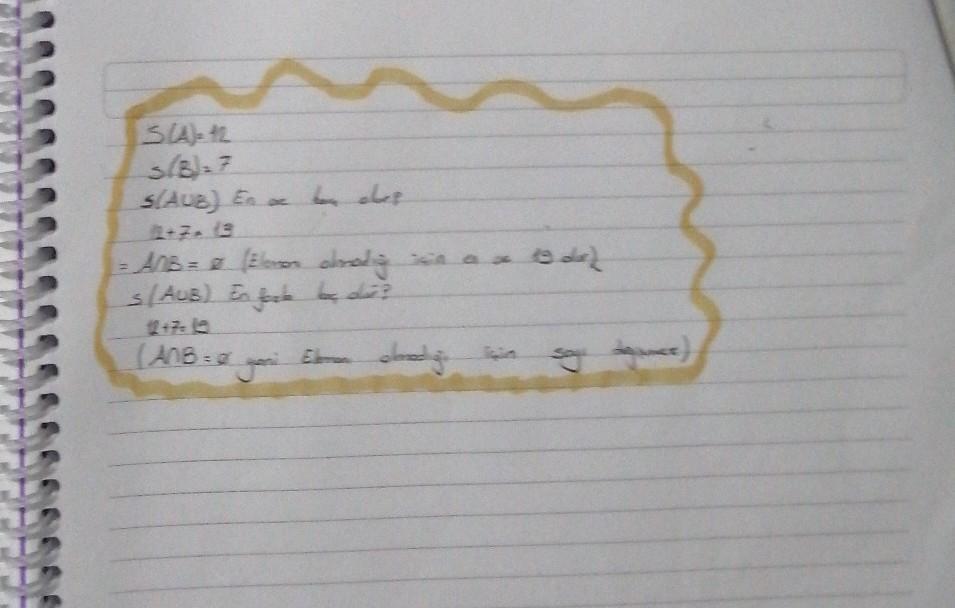 S(A)=12
s(B)=7
s(A∪B) En az kaç olur?
12+7=19
= A∩B = ∅ (Eleman olmadığı için en az 19 olur)
s(A∪B) En fazla kaç olur?
12+7=19
(A∩B = ∅ yani Eleman olmadığı için sayı değişmez)